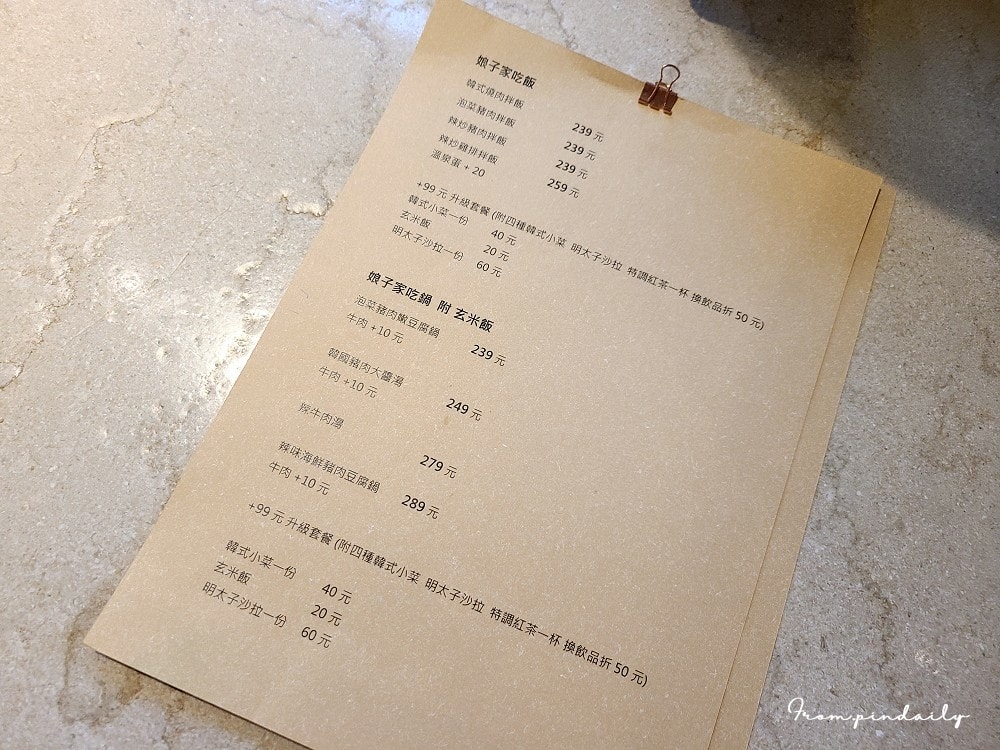 娘子家吃飯
韓式燒肉拌飯 239 元
泡菜豬肉拌飯 239 元
辣炒豬肉拌飯 239 元
辣炒雞排拌飯 259 元
溫泉蛋 + 20
+99 元 升級套餐 (附四種韓式小菜 明太子沙拉 特調紅茶一杯 換飲品折 50 元)
韓式小菜一份 40 元
玄米飯 20 元
明太子沙拉一份 60 元
娘子家吃鍋 附 玄米飯
泡菜豬肉嫩豆腐鍋 239 元
牛肉 +10 元
韓國豬肉大醬湯 249 元
牛肉 +10 元
辣牛肉湯 279 元
辣味海鮮豬肉豆腐鍋 289 元
牛肉 +10 元
+99 元 升級套餐 (附四種韓式小菜 明太子沙拉 特調紅茶一杯 換飲品折 50 元)
韓式小菜一份 40 元
玄米飯 20 元
明太子沙拉一份 60 元
From.pindaily